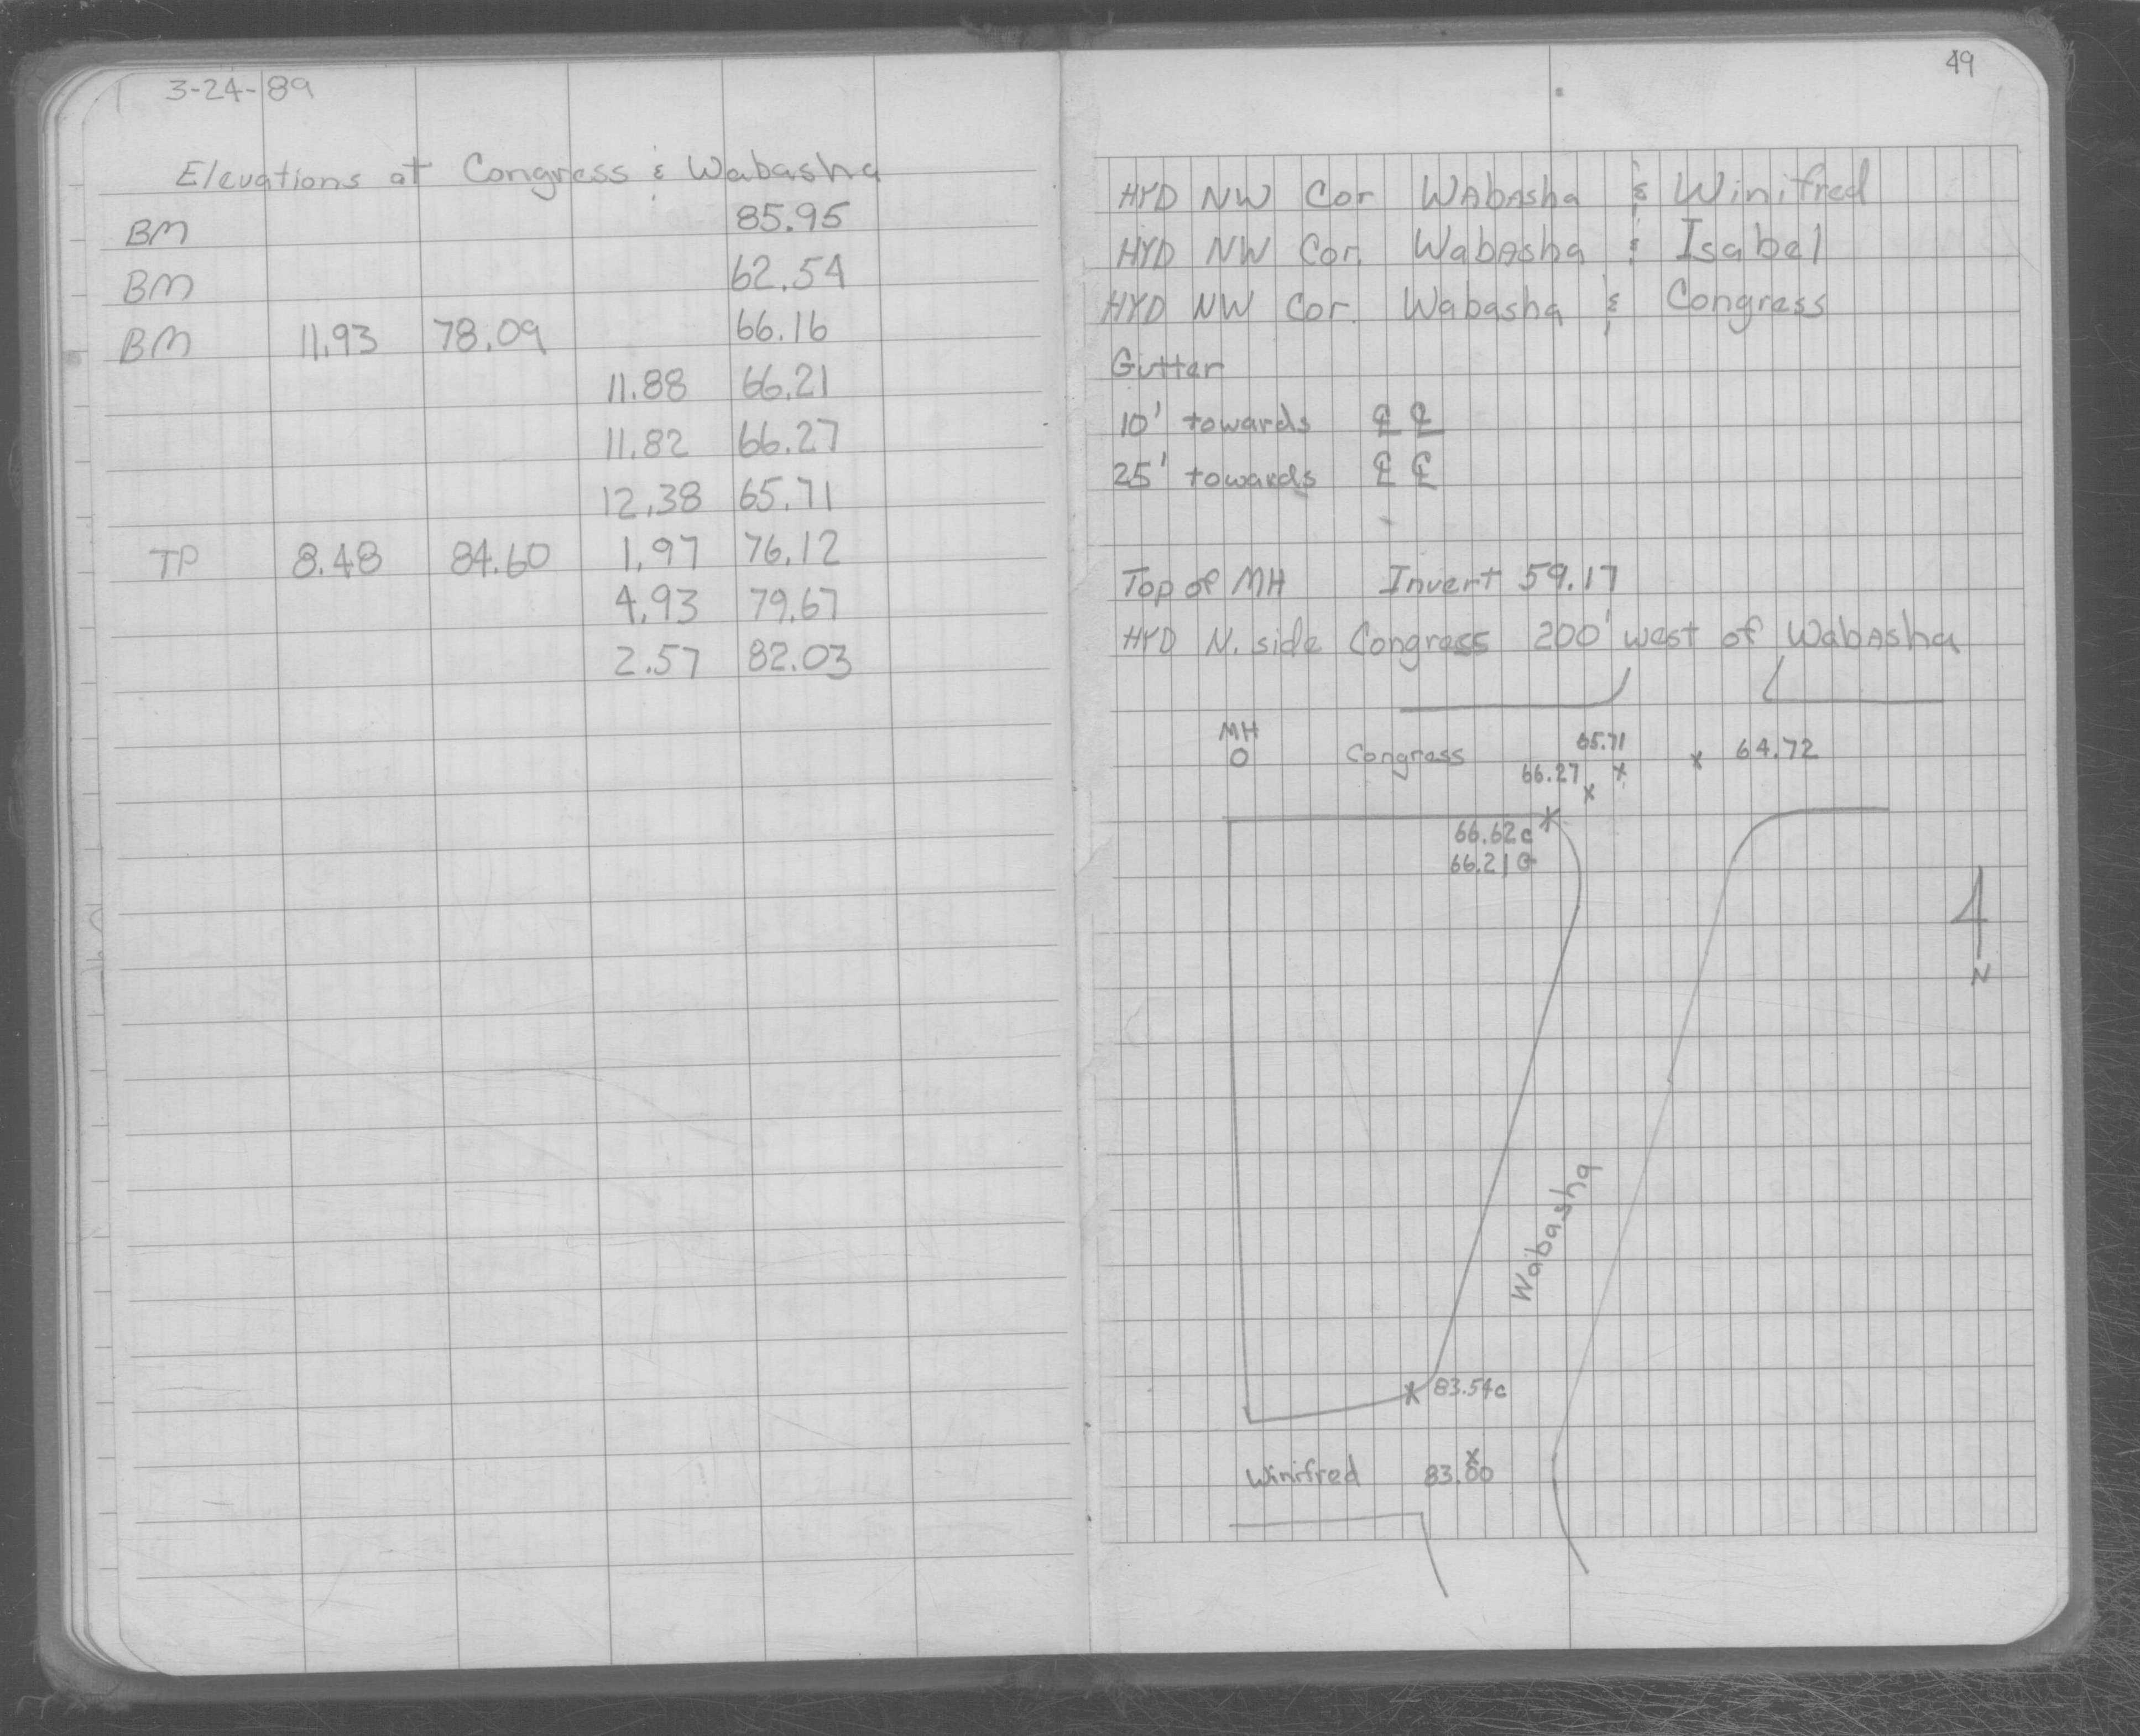 3-24-89
Elevations at Congress & Wabasha
BM 85.95
BM 62.54
BM 11.93 78.09 66.16
11.88 66.21
11.82 66.27
12.38 65.71
TP 8.48 84.60 1.97 76.12
4.93 79.67
2.57 82.03
49
HYD NW Cor WAbAsha & Winifred
HYD NW Cor. WabAsha & Isabel
HYD NW Cor. Wabasha & Congress
Gutter
10' towards ℄ ℄
25' towards ℄ ℄
Top of MH Invert 59.17
HYD N. side Congress 200' west of WabAsha
MH
Congress
65.71
66.27
64.72
66.62c
66.21G
N
Wabasha
83.54c
Winifred 83.00